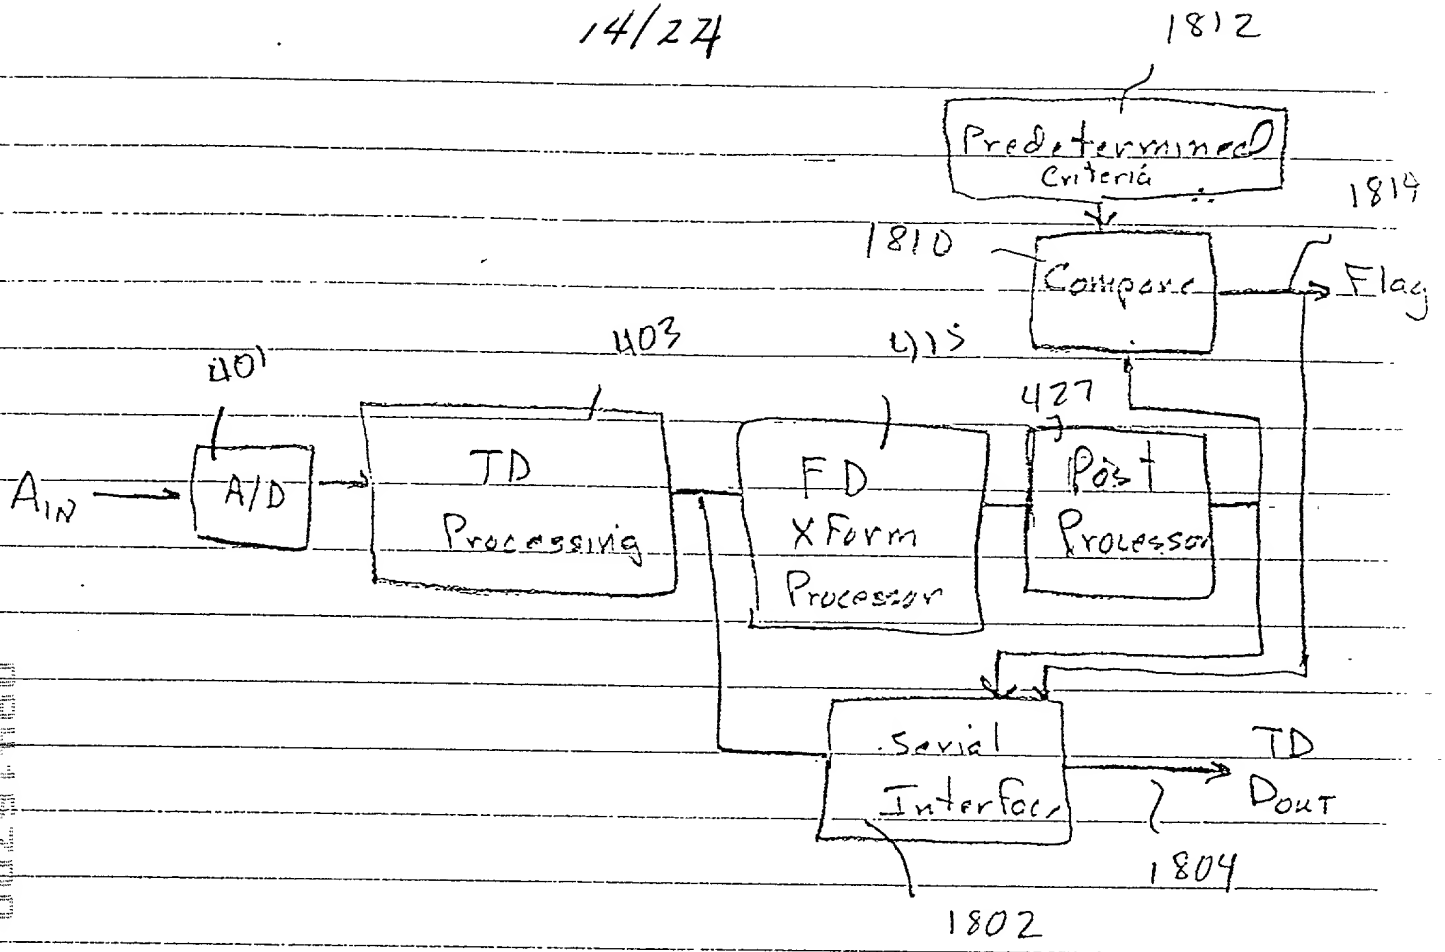 14/24
1812
Predetermined
Criteria
1814
1810
Compare
Flag
401
403
415
427
AIN
A/D
TD
Processing
FD
XForm
Processor
Post
Processor
Serial
Interface
TD
DOUT
1804
1802